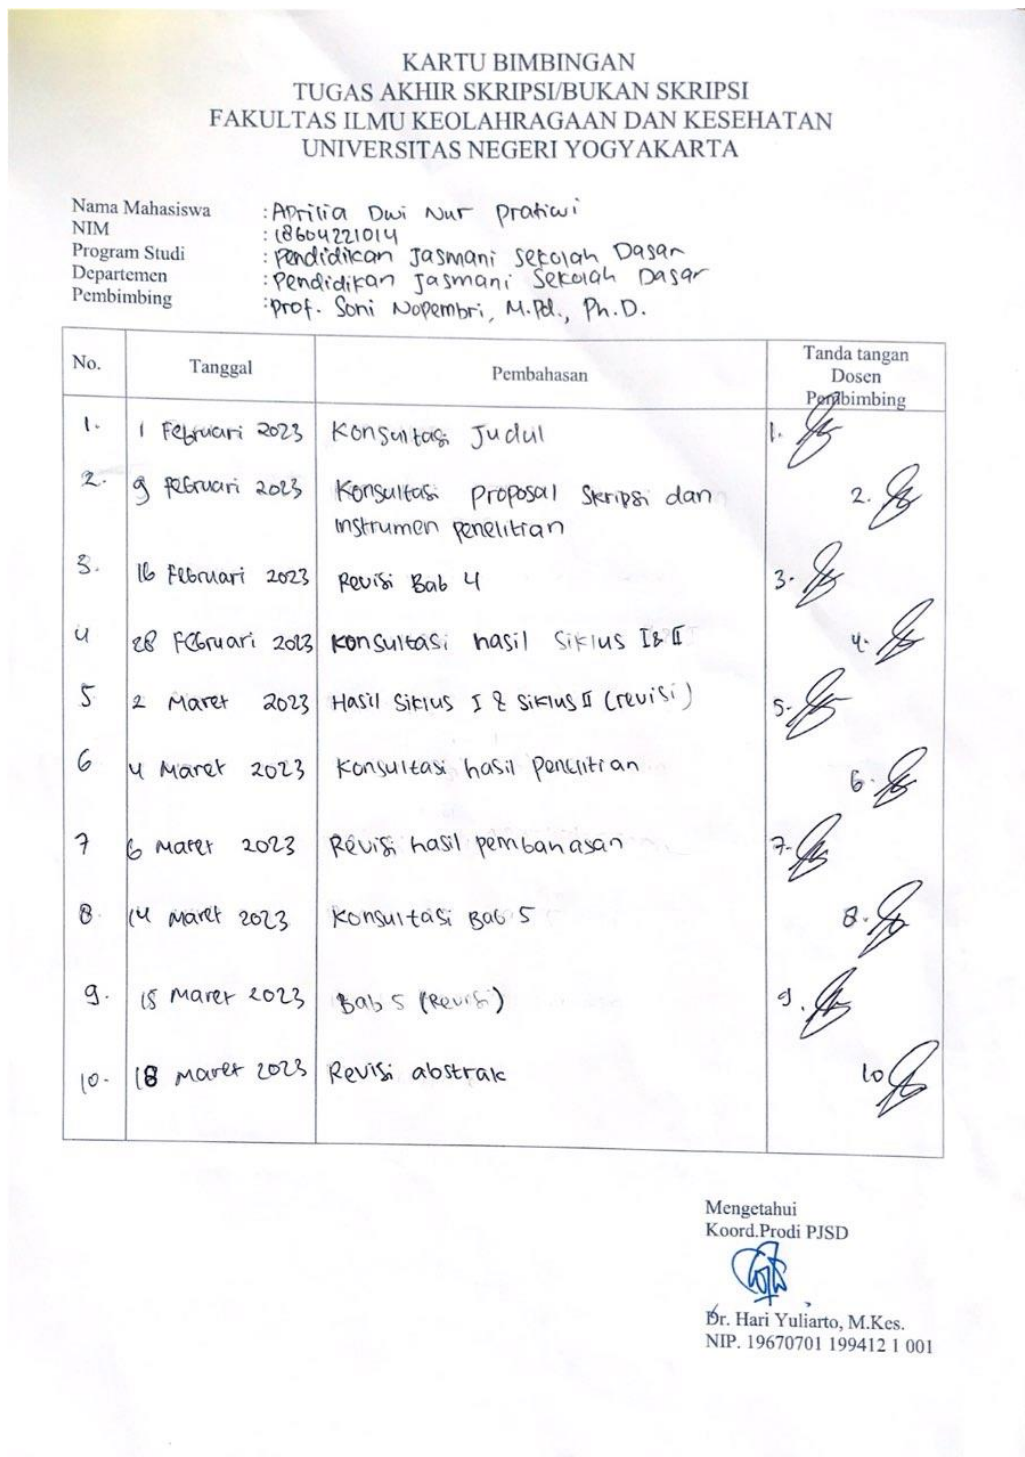 KARTU BIMBINGAN
TUGAS AKHIR SKRIPSI/BUKAN SKRIPSI
FAKULTAS ILMU KEOLAHRAGAAN DAN KESEHATAN
UNIVERSITAS NEGERI YOGYAKARTA
Nama Mahasiswa : Aprilia Dwi Nur Pratiwi
NIM : 18604221014
Program Studi : Pendidikan Jasmani Sekolah Dasar
Departemen : Pendidikan Jasmani Sekolah Dasar
Pembimbing : Prof. Soni Nopembri, M.Pd., Ph.D.
No. Tanggal Pembahasan Tanda tangan
Dosen
Pembimbing
1. 1 Februari 2023 Konsultasi Judul 1.
2. 9 Februari 2023 Konsultasi Proposal Skripsi dan 2.
instrumen penelitian
3. 16 Februari 2023 Revisi Bab 4 3.
4 28 Februari 2023 Konsultasi hasil Siklus I & II 4.
5 2 Maret 2023 Hasil Siklus I & Siklus II (revisi) 5.
6 4 Maret 2023 Konsultasi hasil penelitian 6.
7 6 Maret 2023 Revisi hasil pembahasan 7.
8. 14 Maret 2023 Konsultasi Bab 5 8.
9. 15 Maret 2023 Bab 5 (Revisi) 9.
10. 18 Maret 2023 Revisi abstrak 10
Mengetahui
Koord.Prodi PJSD
Dr. Hari Yuliarto, M.Kes.
NIP. 19670701 199412 1 001